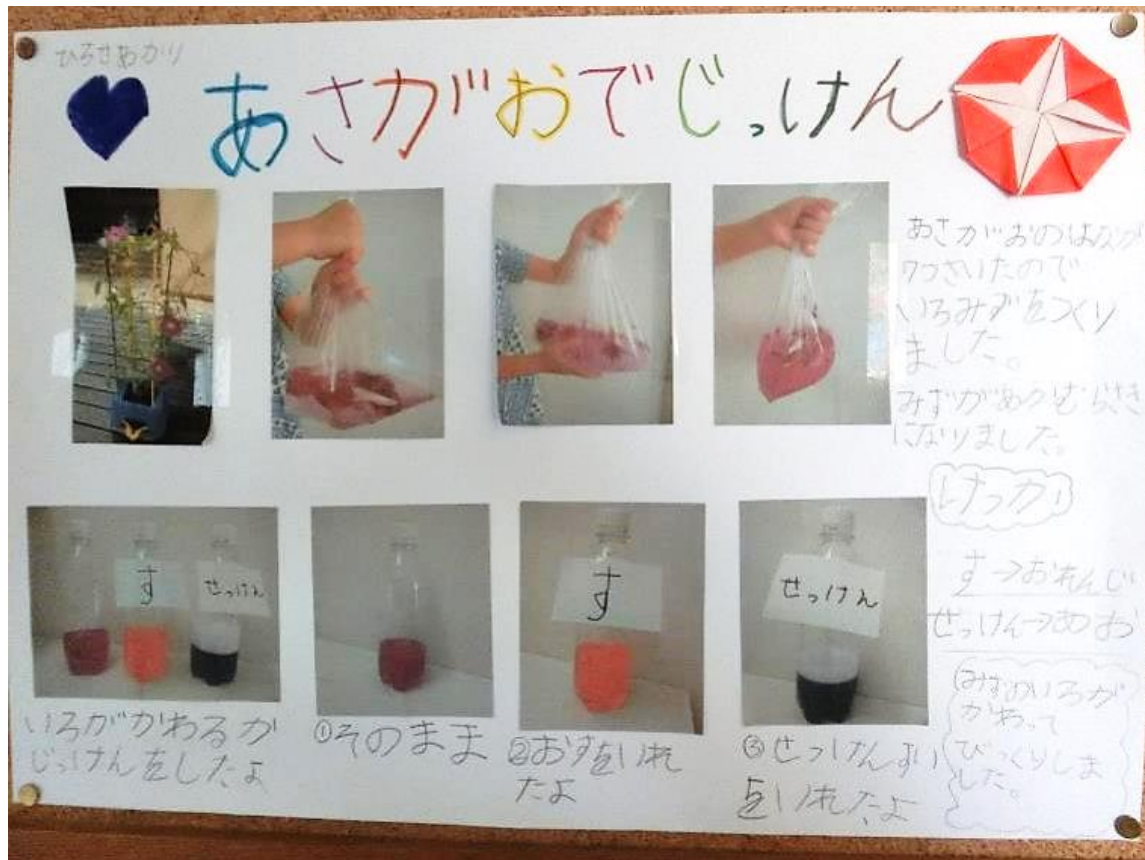 ひろせあかり
あさがおでじっけん
あさがおのはなが
7つさいたので
いろみずをつくり
ました。
みずがあかむらさき
になりました。
けっか
す→おれんじ
せっけん→あお
みずのいろが
かわって
びっくりしま
した。
す
せっけん
す
せっけん
いろがかわるか
じっけんをしたよ
①そのまま
②おすをいれ
たよ
③せっけんすい
をいれたよ